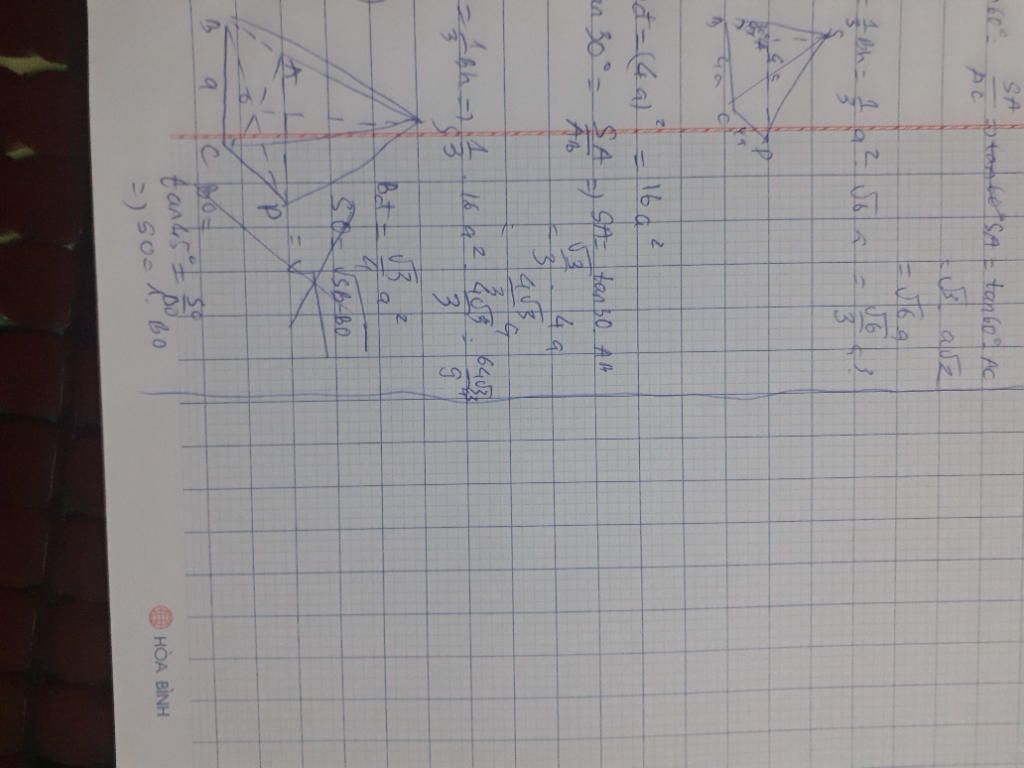 SA
AC
=> tan60° SA = tan60° AC
= √3 . a√2
= √6 a
= 1/3 Bh = 1/3 a² √6 a = √6/3 a³
S
B
C
D
4a
= (4a)² = 16a²
30° = SA/AB => SA = tan30 AB
= √3/3 . 4a
= 4√3/3 a
= 1/3 Bh => 1/3 . 16a² . 4√3/3 = 64√3/9
Bd = √3/4 a²
SO = √SB-BO
A
B
a
C
D
BO =
tan45° = SO/BO
=> SO = 1. BO
HÒA BÌNH